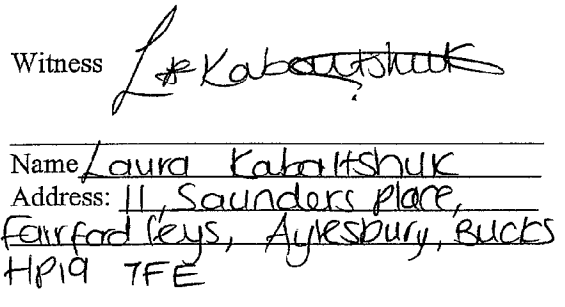 Witness L Kabaltshuk
Name Laura Kabaltshuk
Address: 11, Saunders place,
Fairford leys, Aylesbury, Bucks
HP19 7FE